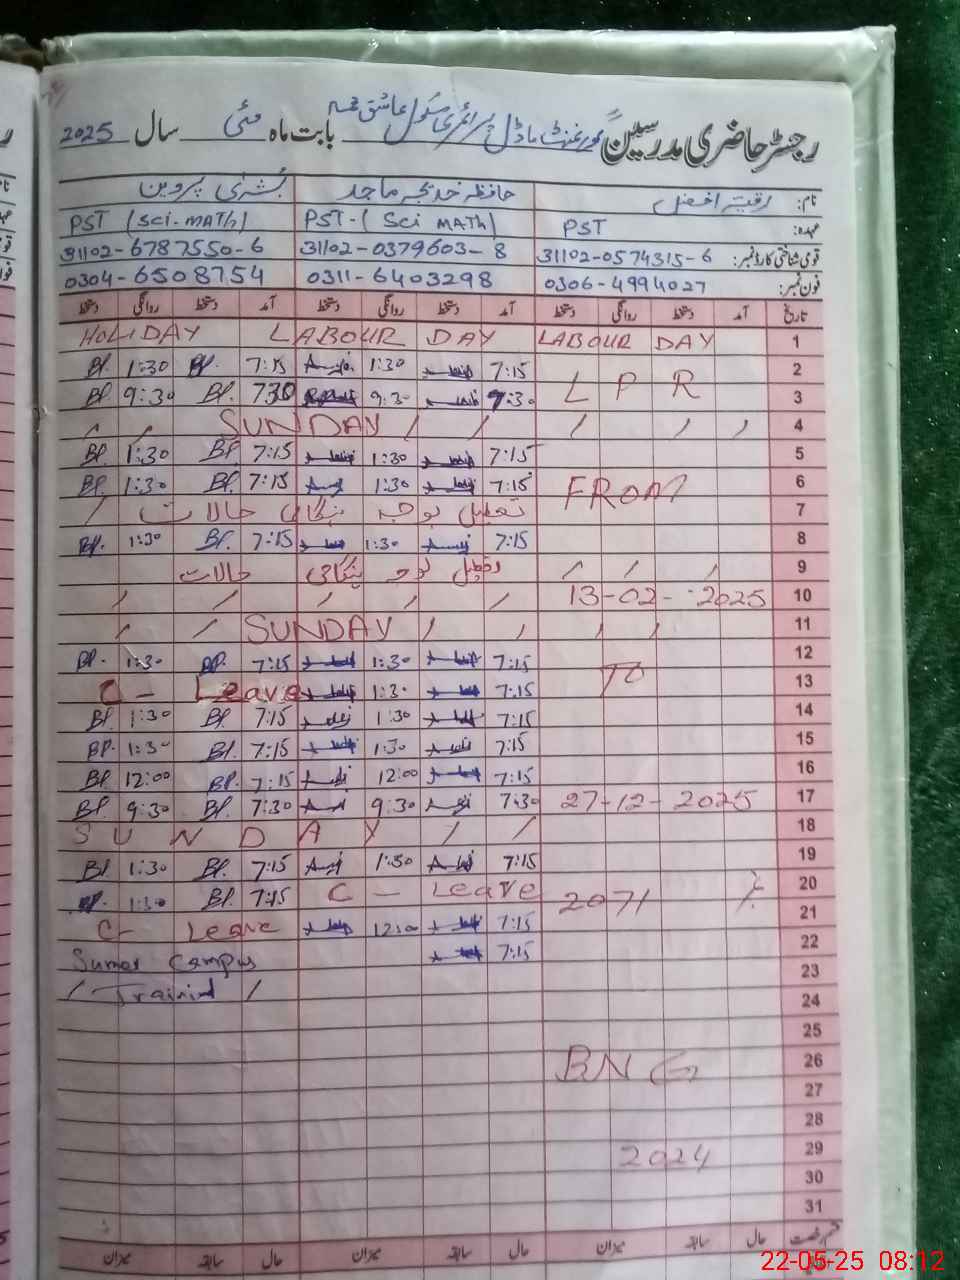 رجسٹر حاضری مدرسین گورنمنٹ ماڈل پرائمری سکول عاشق بابت ماہ مئی سال 2025
نام: رقیہ افضل حافظہ خدیجہ ماجد بشریٰ پروین
عہدہ: PST PST-(Sci MATH) PST (Sci-MATH)
قومی شناختی کارڈ نمبر: 31102-0574315-6 31102-0379603-8 31102-6787550-6
فون نمبر: 0306-4994027 0311-6403298 0304-6508754
تاریخ آمد دستخط روانگی دستخط آمد دستخط روانگی دستخط آمد دستخط روانگی دستخط
HOLIDAY LABOUR DAY LABOUR DAY 1
BP. 1:30 BP. 7:15 1:30 7:15 2
BP. 9:30 BP. 7:30 9:30 7:30 L P R 3
SUNDAY 4
BP. 1:30 BP. 7:15 1:30 7:15 5
BP. 1:30 BP. 7:15 1:30 7:15 FROM 6
تعطیل بوجہ ہنگامی حالات 7
BP. 1:30 BP. 7:15 1:30 7:15 8
تعطیل بوجہ ہنگامی حالات 9
13-02-2025 10
SUNDAY 11
BP. 1:30 BP. 7:15 1:30 7:15 12
C- Leave 1:30 7:15 TO 13
BP. 1:30 BP. 7:15 1:30 7:15 14
BP. 1:30 BP. 7:15 1:30 7:15 15
BP. 12:00 BP. 7:15 12:00 7:15 16
BP. 9:30 BP. 7:30 9:30 7:30 27-12-2025 17
SUNDAY 18
BP. 1:30 BP. 7:15 1:30 7:15 19
BP. 1:30 BP. 7:15 C- Leave 20
C- Leave 12:00 7:15 2071 21
Sumer Campus 7:15 22
Trainind 23
24
25
BNG 26
27
28
2024 29
30
31
قسم رخصت حال سابقہ میزان حال سابقہ میزان حال سابقہ میزان
22-05-25 08:12